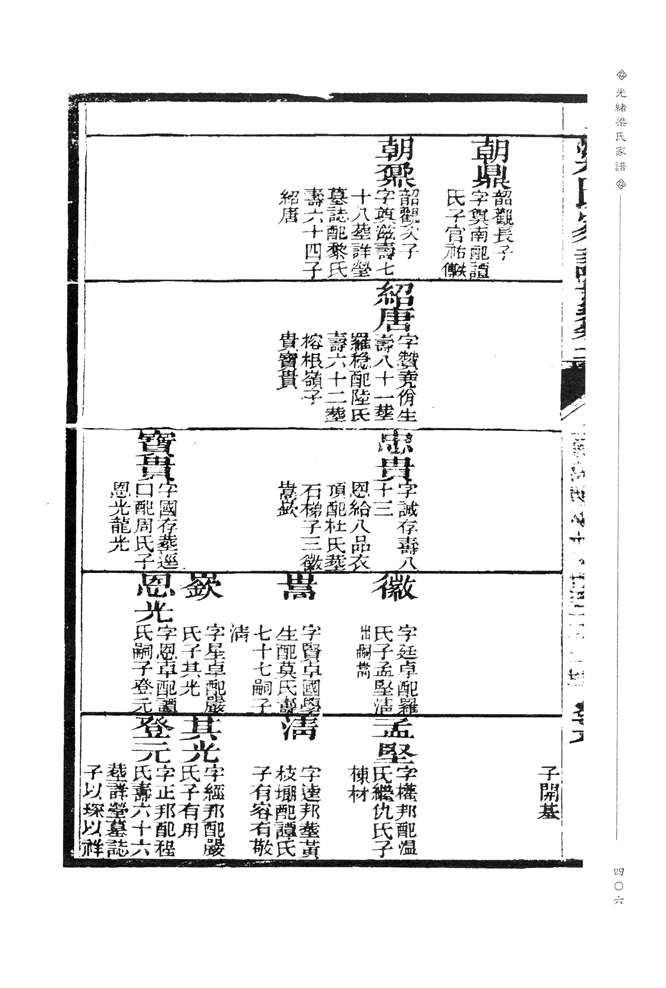 光緒梁氏家譜
四〇六
朝鼎
韶觀長子
字奠南配譚
氏子官祐
朝鼐
韶觀次子
字奠滋壽七
十八塟詳塋
墓誌配黎氏
壽六十四子
紹唐
紹唐
字贊堯佾生
壽八十一塟
羅稳配陸氏
壽六十二塟
榕根嶺子
貴寶貴
忠貴
字誠存壽八
十三
恩給八品衣
頂配杜氏塟
石梯子三徽
嵩嶔
寶貴
字國存塟逕
口配周氏子
恩光龍光
徽
字廷卓配羅
氏子孟堅清
出嗣嵩
嵩
字賢卓國學
生配莫氏壽
七十七嗣子
清
嶔
字星卓配嚴
氏子其光
恩光
字恩卓配譚
氏嗣子登元
子開基
孟堅
字權邦配溫
氏繼仇氏子
棟材
清
字達邦塟黃
枝塱配譚氏
子有容有敬
其光
字經邦配嚴
氏子有用
登元
字正邦配程
氏壽六十六
塟詳塋墓誌
子以琛以祥